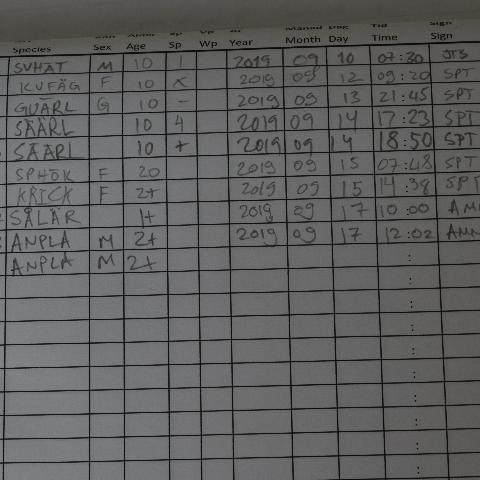 Species Sex Age Sp Wp Year Month Day Time Sign
SVHAT M 10 1 2019 09 10 07:30 JTS
KUFÅG F 10 X 2019 09 12 09:20 SPT
GUÄRL G 10 - 2019 09 13 21:45 SPT
SÄÄRL 10 4 2019 09 14 17:23 SPT
SÄÄRL 10 + 2019 09 14 18:50 SPT
SPHÖK F 20 2019 09 15 07:48 SPT
KRICK F 2+ 2019 09 15 14:38 SPT
SÅLÄR 1+ 2019 09 17 10:00
ANPLA M 2+ 2019 09 17 12:02
ANPLA M 2+ :